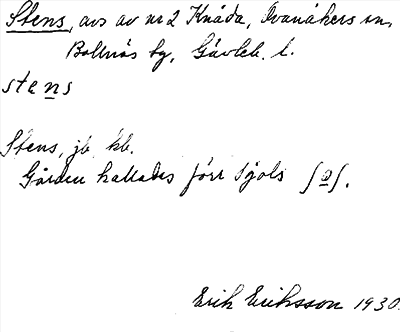 Stens, avs av nr 2 Knåda, Ovanåkers sn,
Bollnäs kg, Gävleb. l.
stens
Stens, jb, kb.
Gården kallades förr Sjols
Erik Eriksson 1930.